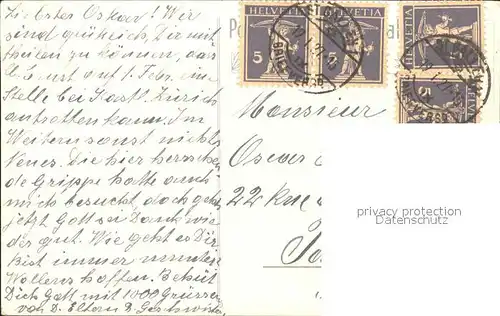 Liebster Oskar! Wir
sind glücklich, Dir mit
theilen zu können, dass
Ernst am 1. Febr. eine
Stelle bei Jost Zürich
antretten kann. Im
Weitern sonst nichts
Neues. Die hier herrschen
de Grippe hatte auch
mich besucht, doch geht
jetzt Gott sei Dank wie
der gut. Wie geht es Dir
Bist immer munter
Wollens hoffen. Behüt
Dich Gott mit 1000 Grüsse
von D. Eltern & Geschwister
HELVETIA HELVETIA
5 5
5 5
Monsieur
Oscar
22 rue
privacy protection
Datenschutz